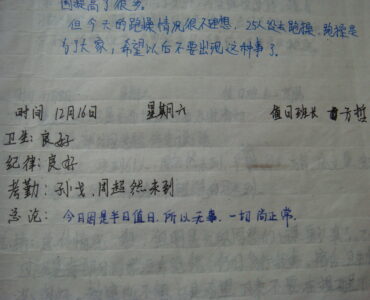 因提高了很多。
但今天的跑操情况很不理想，25人没去跑操，跑操是
为了大家，希望以后不要出现这种事了。
时间 12月16日 星期六 值日班长 方哲
卫生：良好
纪律：良好
考勤：孙戈、周超然未到
总论：今日因是半日值日，所以无事，一切尚正常。